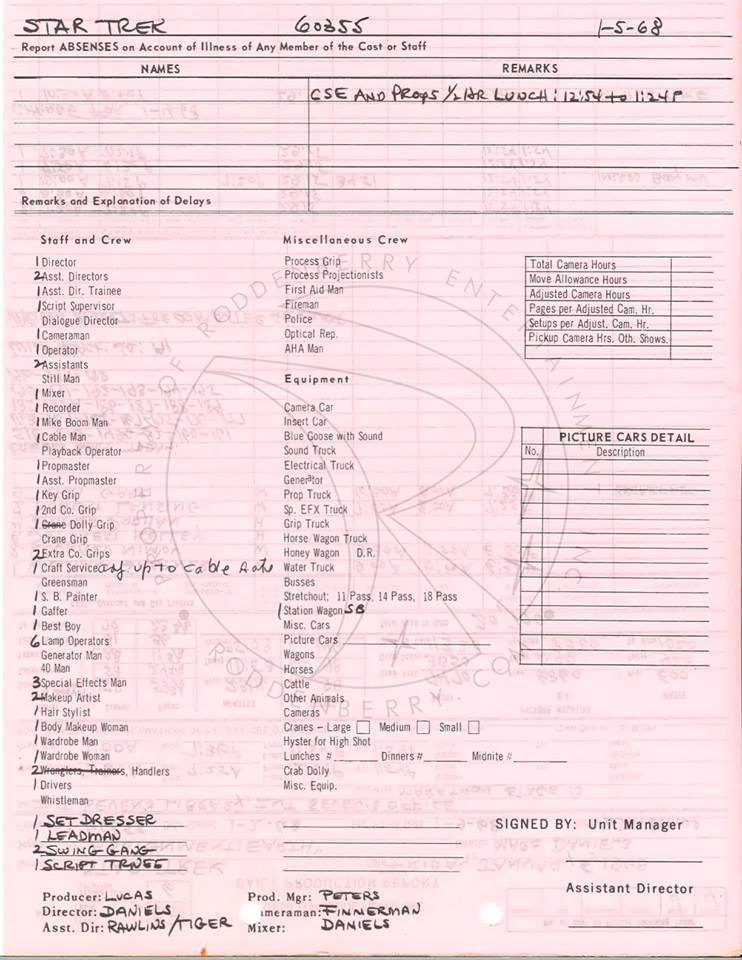 STAR TREK 60355 1-5-68
Report ABSENSES on Account of Illness of Any Member of the Cast or Staff
NAMES REMARKS
CSE AND PROPS 1/2 HR LUNCH: 12:54 to 1:24P
Remarks and Explanation of Delays
Staff and Crew
1 Director
2 Asst. Directors
1 Asst. Dir. Trainee
1 Script Supervisor
Dialogue Director
1 Cameraman
1 Operator
2 Assistants
Still Man
1 Mixer
1 Recorder
1 Mike Boom Man
1 Cable Man
Playback Operator
1 Propmaster
1 Asst. Propmaster
1 Key Grip
1 2nd Co. Grip
1 Crane Dolly Grip
Crane Grip
2 Extra Co. Grips
1 Craft Service up to cable rate
Greensman
1 S. B. Painter
1 Gaffer
1 Best Boy
6 Lamp Operators
Generator Man
40 Man
3 Special Effects Man
2 Makeup Artist
1 Hair Stylist
1 Body Makeup Woman
1 Wardrobe Man
1 Wardrobe Woman
2 Wranglers, Trainers, Handlers
1 Drivers
Whistleman
1 SET DRESSER
1 LEADMAN
2 SWING GANG
1 SCRIPT TRNEE
Miscellaneous Crew
Process Grip
Process Projectionists
First Aid Man
Fireman
Police
Optical Rep.
AHA Man
Equipment
Camera Car
Insert Car
Blue Goose with Sound
Sound Truck
Electrical Truck
Generator
Prop Truck
Sp. EFX Truck
Grip Truck
Horse Wagon Truck
Honey Wagon D.R.
Water Truck
Busses
Stretchout; 11 Pass, 14 Pass, 18 Pass
1 Station Wagon SB
Misc. Cars
Picture Cars
Wagons
Horses
Cattle
Other Animals
Cameras
Cranes – Large Medium Small
Hyster for High Shot
Lunches # Dinners # Midnite #
Crab Dolly
Misc. Equip.
Total Camera Hours
Move Allowance Hours
Adjusted Camera Hours
Pages per Adjusted Cam. Hr.
Setups per Adjust. Cam. Hr.
Pickup Camera Hrs. Oth. Shows.
PICTURE CARS DETAIL
No. Description
SIGNED BY: Unit Manager
Assistant Director
Producer: LUCAS Prod. Mgr: PETERS
Director: DANIELS ameraman: FINNERMAN
Asst. Dir: RAWLINS/TIGER Mixer: DANIELS
PROPERTY OF RODDENBERRY ENTERTAINMENT INC.
RODDENBERRY.COM